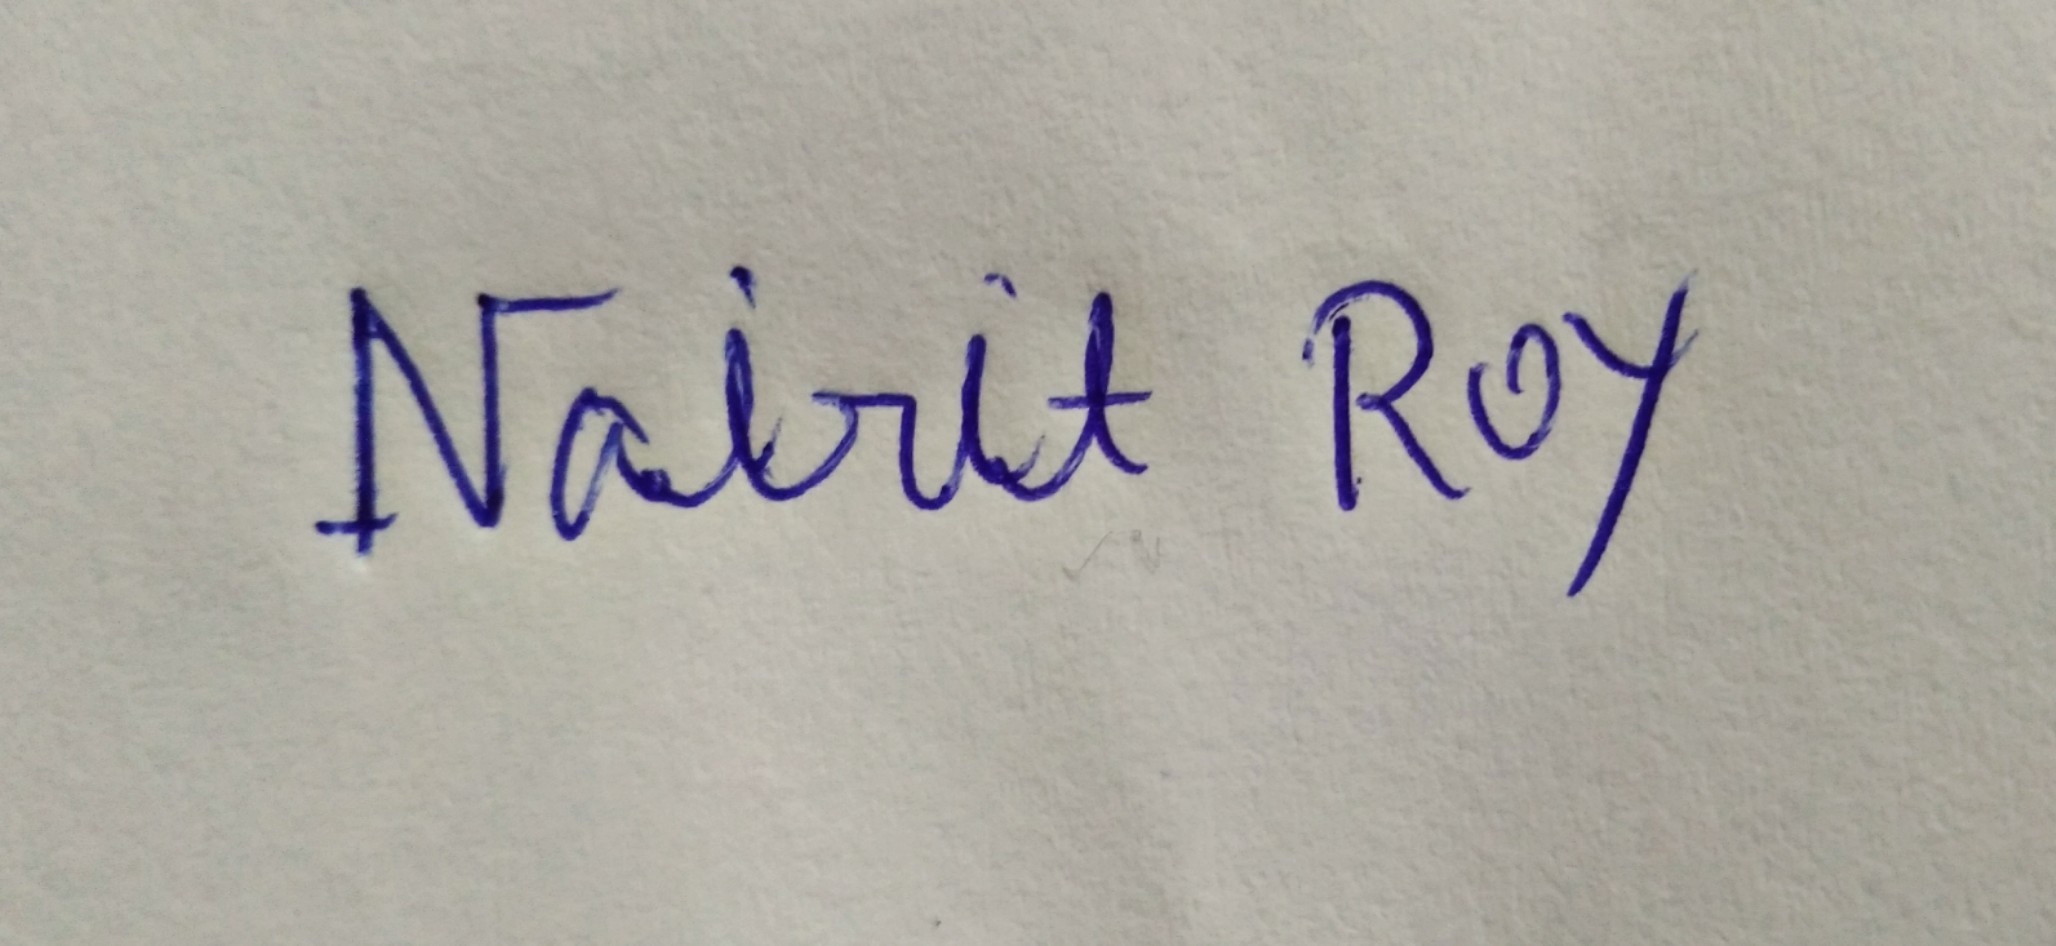 Nairit Roy